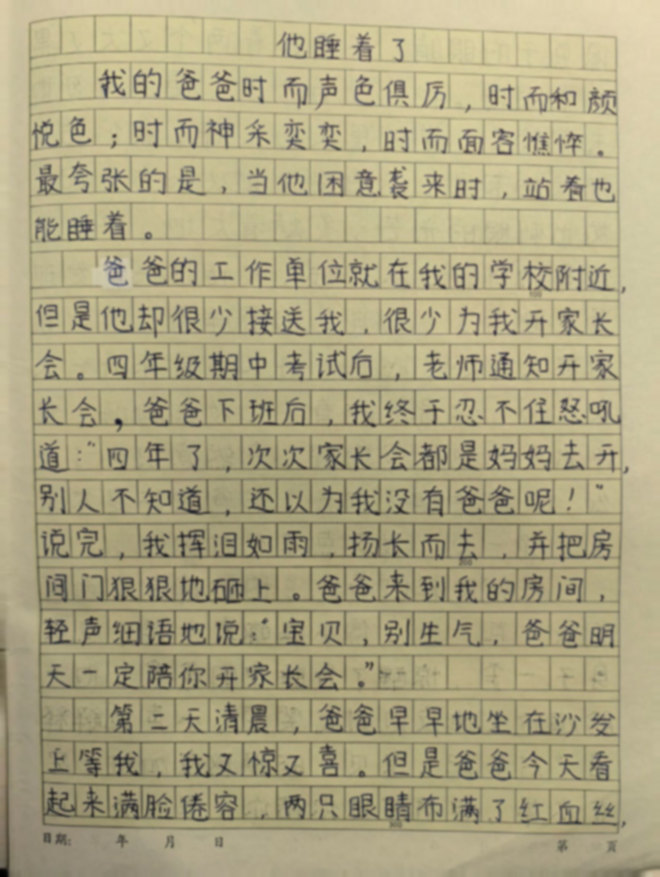 他睡着了
我的爸爸时而声色俱厉，时而和颜
悦色；时而神采奕奕，时而面容憔悴。
最夸张的是，当他困意袭来时，站着也
能睡着。
爸爸的工作单位就在我的学校附近，
但是他却很少接送我，很少为我开家长
会。四年级期中考试后，老师通知开家
长会，爸爸下班后，我终于忍不住怒吼
道："四年了，次次家长会都是妈妈去开，
别人不知道，还以为我没有爸爸呢！"
说完，我挥泪如雨，扬长而去，并把房
间门狠狠地砸上。爸爸来到我的房间，
轻声细语地说："宝贝，别生气，爸爸明
天一定陪你开家长会。"
第二天清晨，爸爸早早地坐在沙发
上等我，我又惊又喜。但是爸爸今天看
起来满脸倦容，两只眼睛布满了红血丝，
日期： 年 月 日 第 页